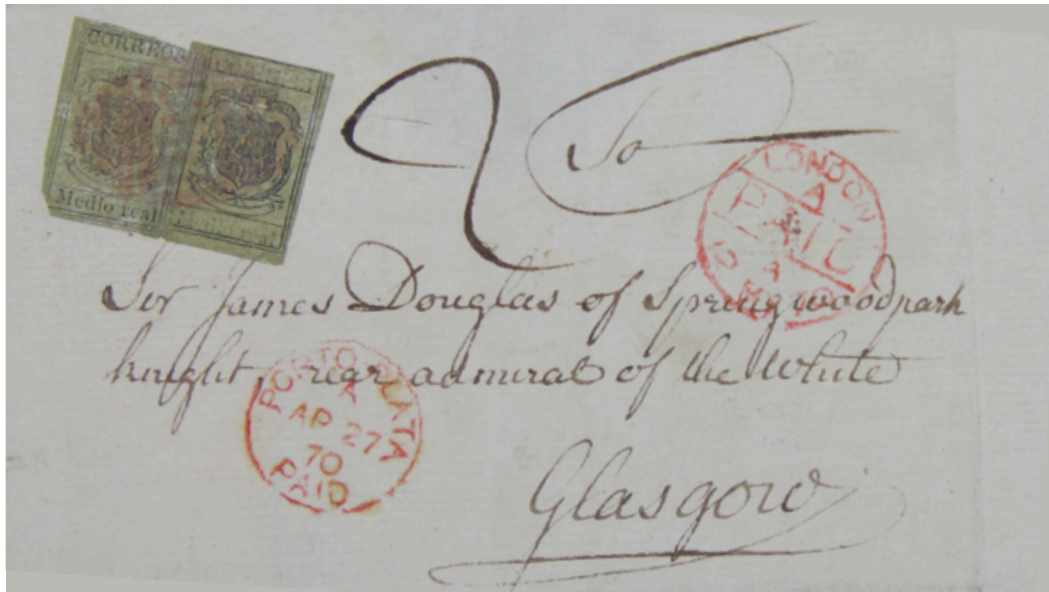 CORREOS
Medio real Medio real
2
To
LONDON
A
PAID
Sir James Douglas of Springwoodpark
knight, rear admiral of the White
PORTO PLATA
A
AP 27
70
PAID
Glasgow